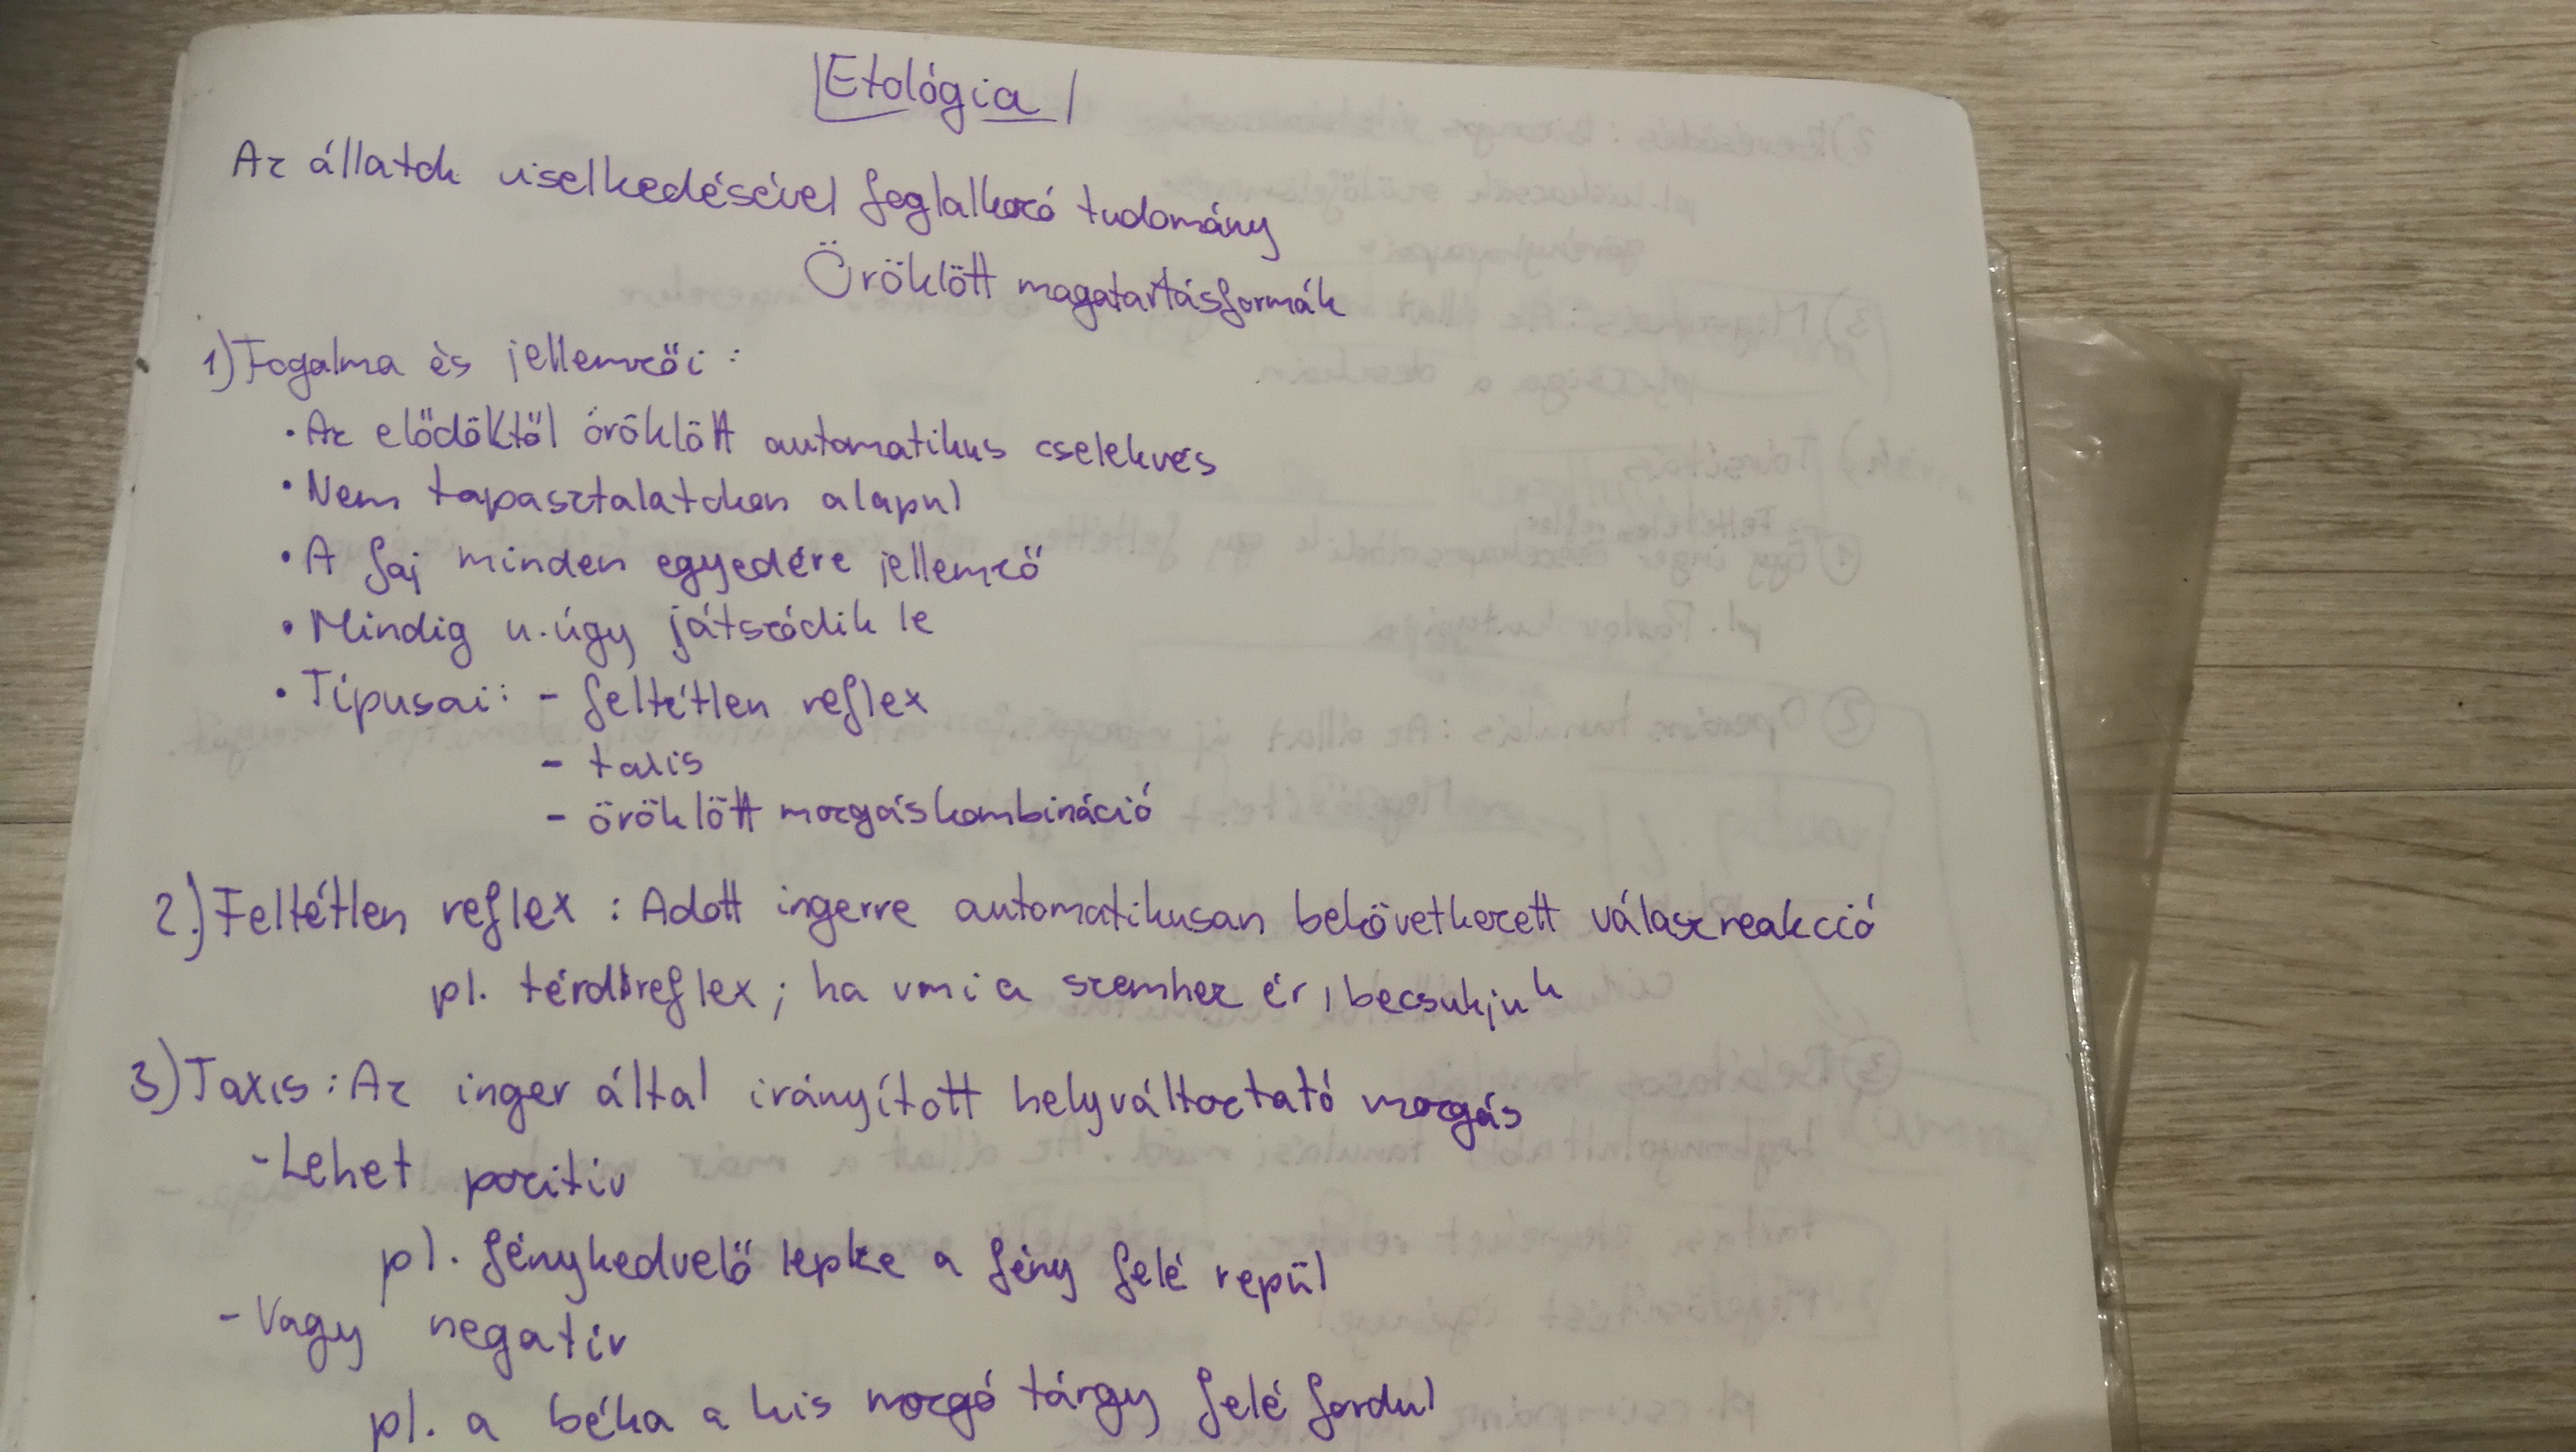 Etológia
Az állatok viselkedésével foglalkozó tudomány
Öröklött magatartásformák
1) Fogalma és jellemzői:
• Az elődöktől öröklött automatikus cselekvés
• Nem tapasztalatokon alapul
• A faj minden egyedére jellemző
• Mindig u.úgy játszódik le
• Típusai: - feltétlen reflex
- taxis
- öröklött mozgáskombináció
2.) Feltétlen reflex: Adott ingerre automatikusan bekövetkezett válaszreakció
pl. térdreflex; ha vmi a szemhez ér, becsukjuk
3) Taxis: Az inger által irányított helyváltoztató mozgás
- Lehet pozitív
pl. fénykedvelő lepke a fény felé repül
- Vagy negatív
pl. a béka a kis mozgó tárgy felé fordul